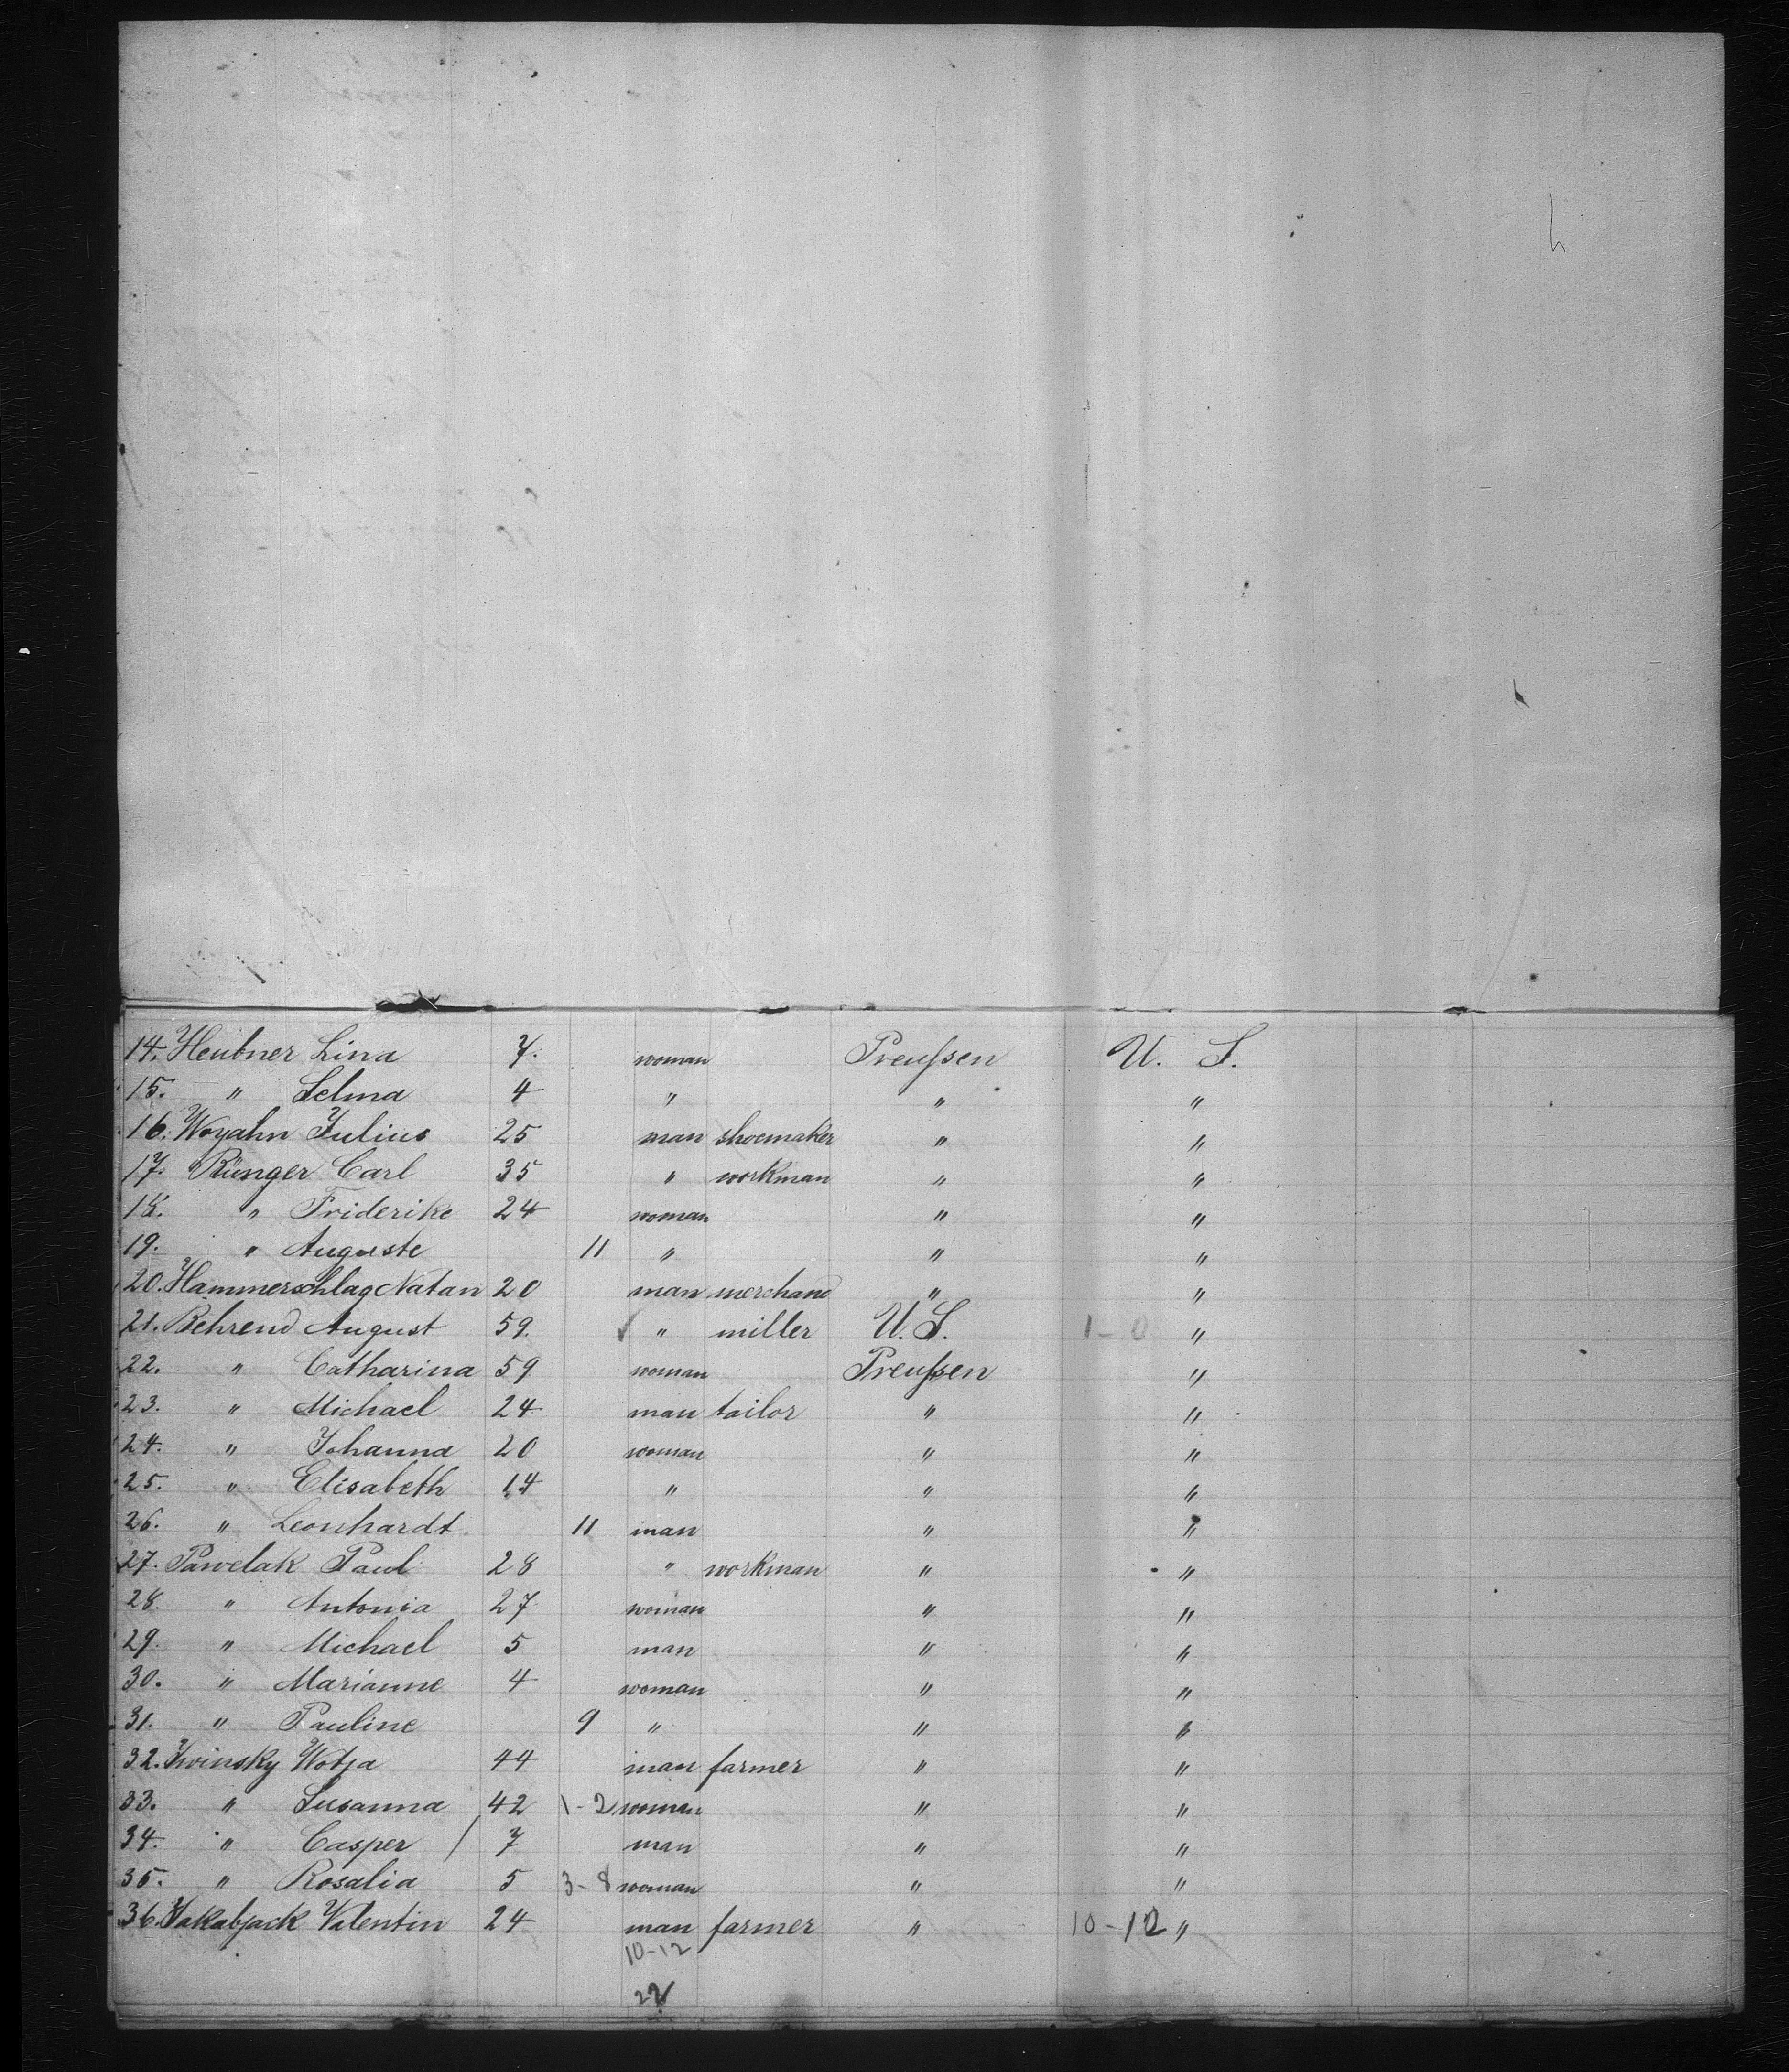 h
14. Heubner Lina 7. woman Preußen U. S.
15. " Selma 4 " " "
16. Woyahn Julius 25 man shoemaker " "
17. Rünger Carl 35 " workman " "
18. " Friderike 24 woman " "
19. " Auguste 11 " " "
20. Hammerschlag Natan 20 man merchand " "
21. Behrend August 59. ✓ " miller U. S. 1-0 "
22. " Catharina 59 woman Preußen "
23. " Michael 24 man tailor " "
24. " Johanna 20 woman " "
25. " Elisabeth 14 " " "
26. " Leonhardt 11 man " "
27. Pawelak Paul 28 " workman " "
28. " Antonia 27 woman " "
29. " Michael 5 man " "
30. " Marianne 4 woman " "
31. " Pauline 9 " " "
32. Ywinsky Wotja 44 man farmer " "
33. " Susanna 42 1-2 woman " "
34. " Casper / 7 man " "
35. " Rosalia 5 3-8 woman " "
36. Jakabjack Valentin 24 man farmer " 10-12 "
10-12
22